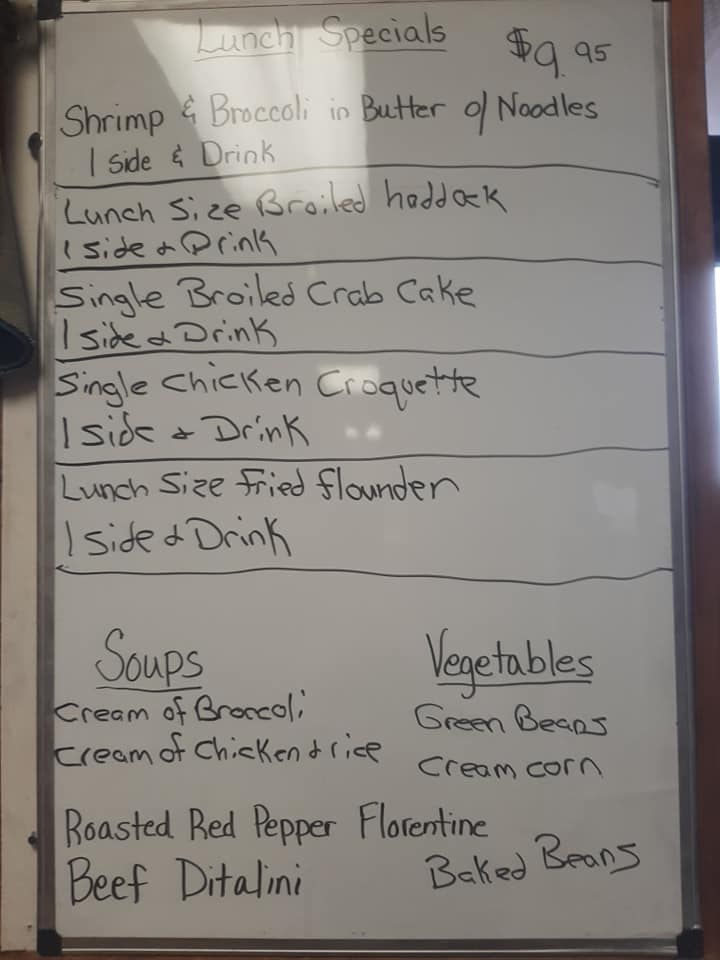 Lunch Specials $9.95
Shrimp & Broccoli in Butter o/ Noodles
1 side & Drink
Lunch Size Broiled haddock
1 side & Drink
Single Broiled Crab Cake
1 side & Drink
Single Chicken Croquette
1 side & Drink
Lunch Size fried flounder
1 side & Drink
Soups
Cream of Broccoli
Cream of Chicken & rice
Roasted Red Pepper Florentine
Beef Ditalini
Vegetables
Green Beans
Cream corn
Baked Beans